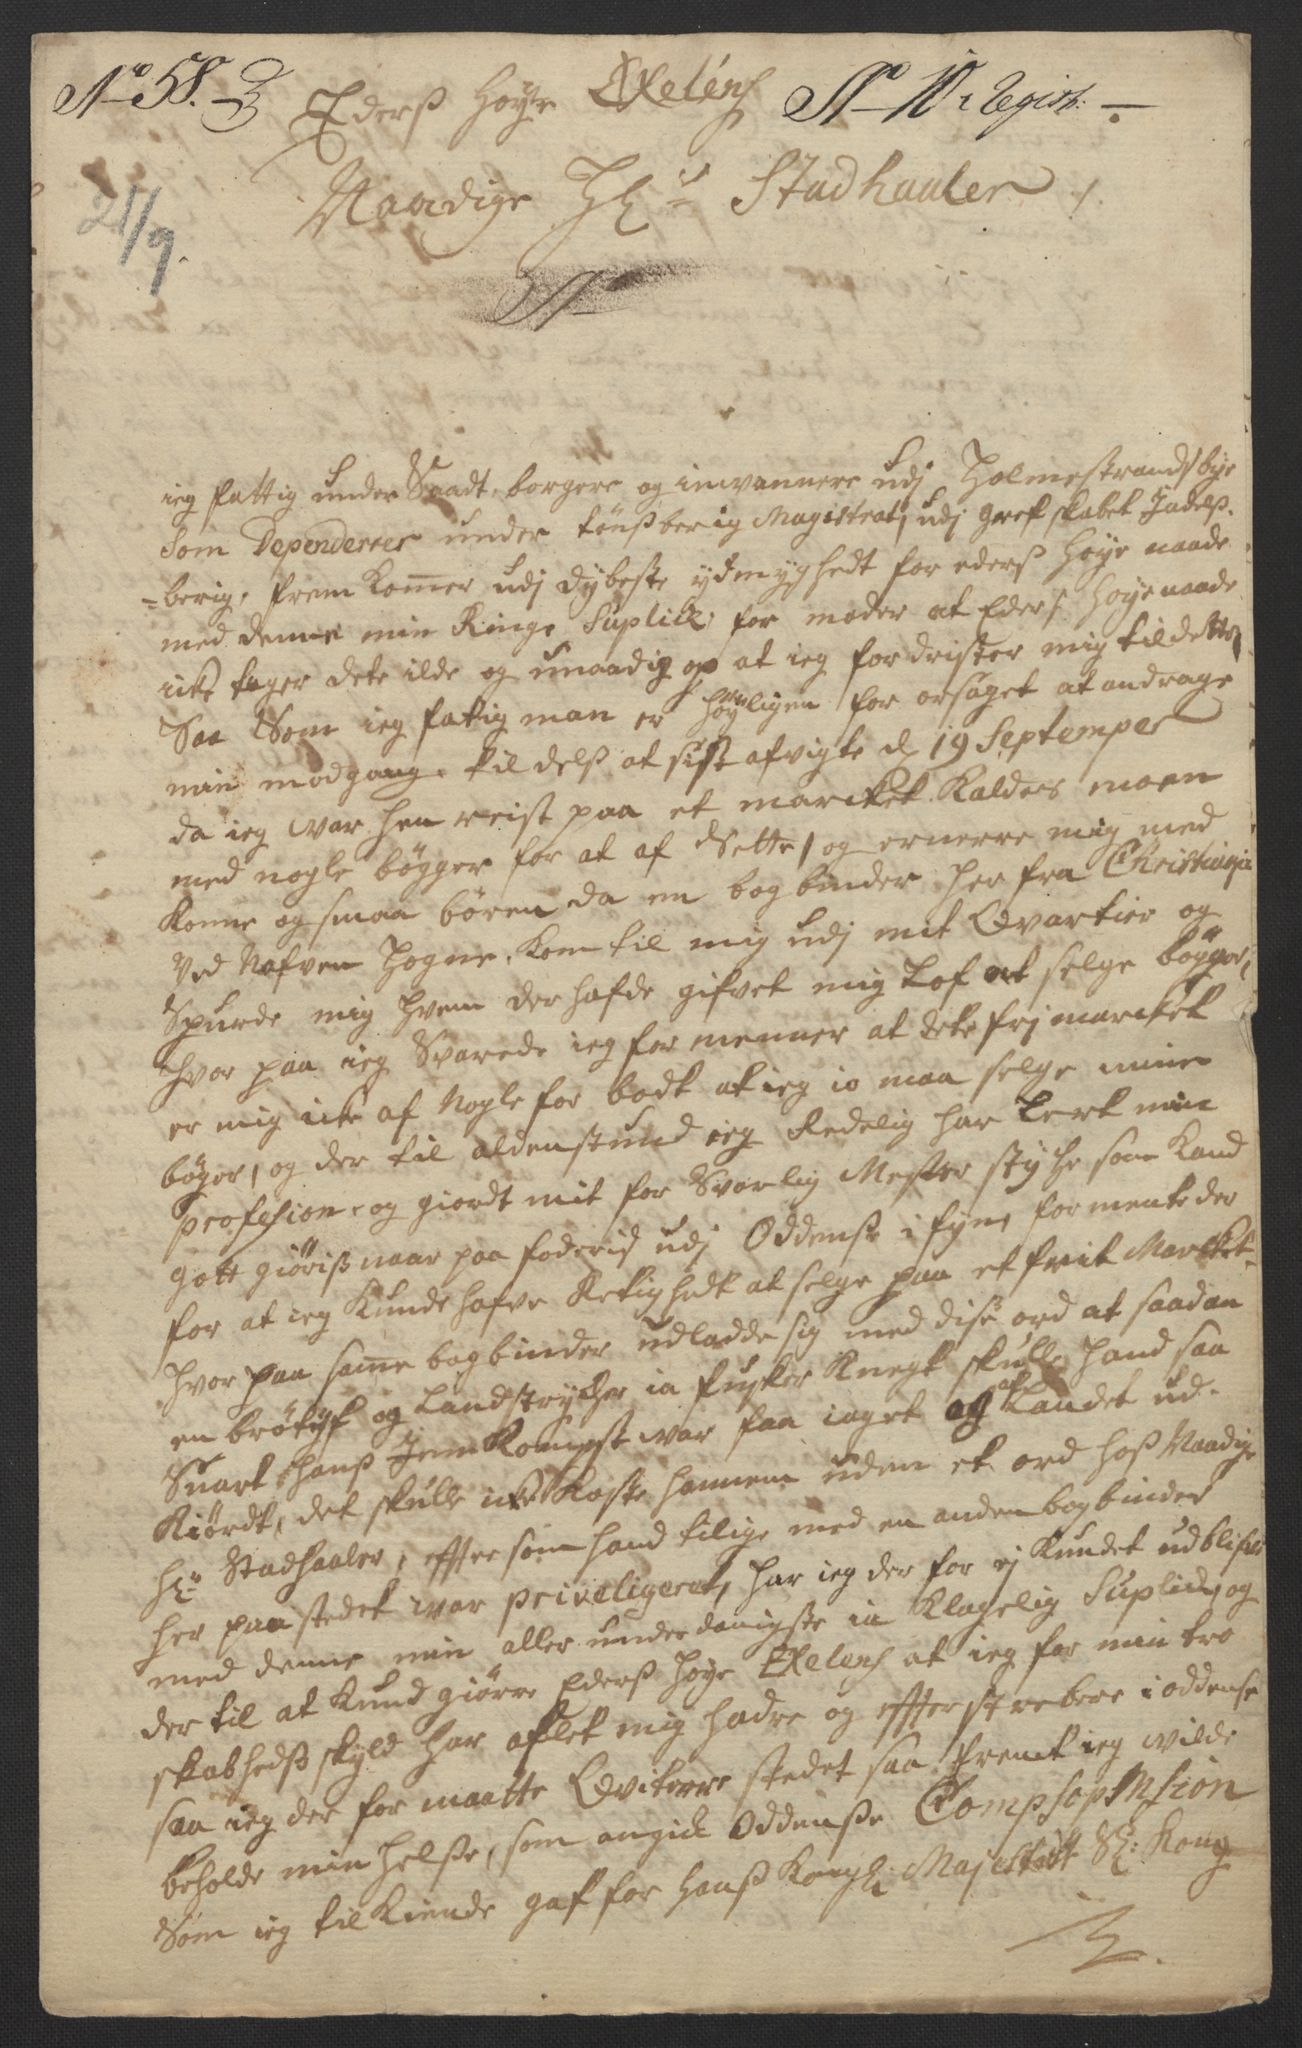 No 58.
Eders Høye Exelens
No 10 i Regist:
Naadige Hr Stadhaaler
21/9.
No
ieg fattig under Saadt, borgere og inwannere udj Holmestrands bye
som Dependerrer under tönsberig Magistrat, udj grefskabet Jadels-
berig, frem kommer udj dybeste ydmyghedt for eders høye naade
med denne min Ringe Suplick, for moder at Eders høye naade
icke tager dete ilde og unaadig op at ieg fordrister mig til dette,
Saa Som ieg fatig man er høyligen for orsaget at andrage
min modgang, til dels at sist afvigte d 19 Septemper
da ieg war hen reist paa et marcket kaldes moen
med nogle bögger for at af Sette, og ernerre mig med
konne og smaa bören da en bogbinder her fra Christiania
ved Nafven Hogne, kom til mig udj mit Qvartier og
Spurde mig hvem der hafde gifvet mig Lof at selge bögger,
hvor paa ieg Svarede ieg formenner at dete frj marcket
er mig icke af Nogle for bodt at ieg io maa selge mine
böger, og der til aldenstund ieg Redelig har Lert min
profesion, og giordt mit for Svarlig Mester stycke som kand
gott giöris naar paa foderis udj Oddense i fyn, formente der
for at ieg kunde hafve Retighedt at selge paa et frit Marcket-
hvor paa samme bogbinder udladde sig med dise ord at saadan
en brötyf og Landstrycher ia fusker knegt skulle hand saa
Snart hans Jemkompst war faa iaget og af Landet ud-
kiördt, det skulle icke koste hannem uden et ord hos Naadige
Hr Stadhaaler, effter som hand tilige med en anden bogbinder
her paa stedet war priveligeret, har ieg der for ej kundet udblifve
med denne min aller underdanigste ia klagelig Suplick, og
der til at kund giörre Eders høye Exelens at ieg for min tro
skabheds skyld har aflet mig hadre og effterstrebere i oddense
saa ieg der for maatte Qviterre stedet saa fremt ieg wilde
beholde min helse, som angick Oddense Compsopmsion
Som ieg til kiende gaf for hans kongl: Majestett Sl: kong